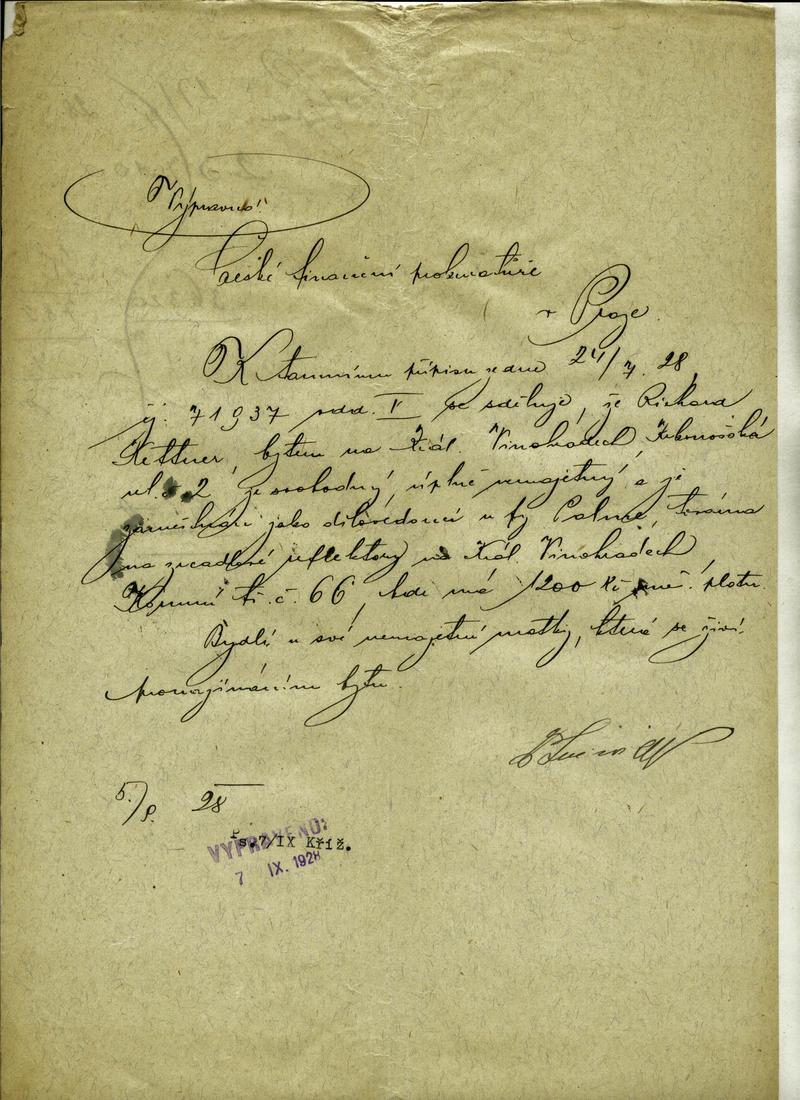 "Výpravna"
České finanční prokuratuře
v Praze.
K tamnímu přípisu ze dne 24/7. 28,
čj. 71937 odd. V se sděluje, že Richard
Kettner, bytem na Král. Vinohradech, Krkonošská
ul. č. 2 je svobodný, úplně nemajetný a je
zaměstnán jako dílovedoucí u fy Palme, továrna
na zrcadlové reflektory na Král. Vinohradech,
Korunní tř. č. 66, kde má 1200 Kč měs. platu.
Bydlí u své nemajetné matky, která se živí
pronajímáním bytu.
5./9. 28
Ps. 7/IX Kříž.
VYPRAVENO:
7 IX. 1928